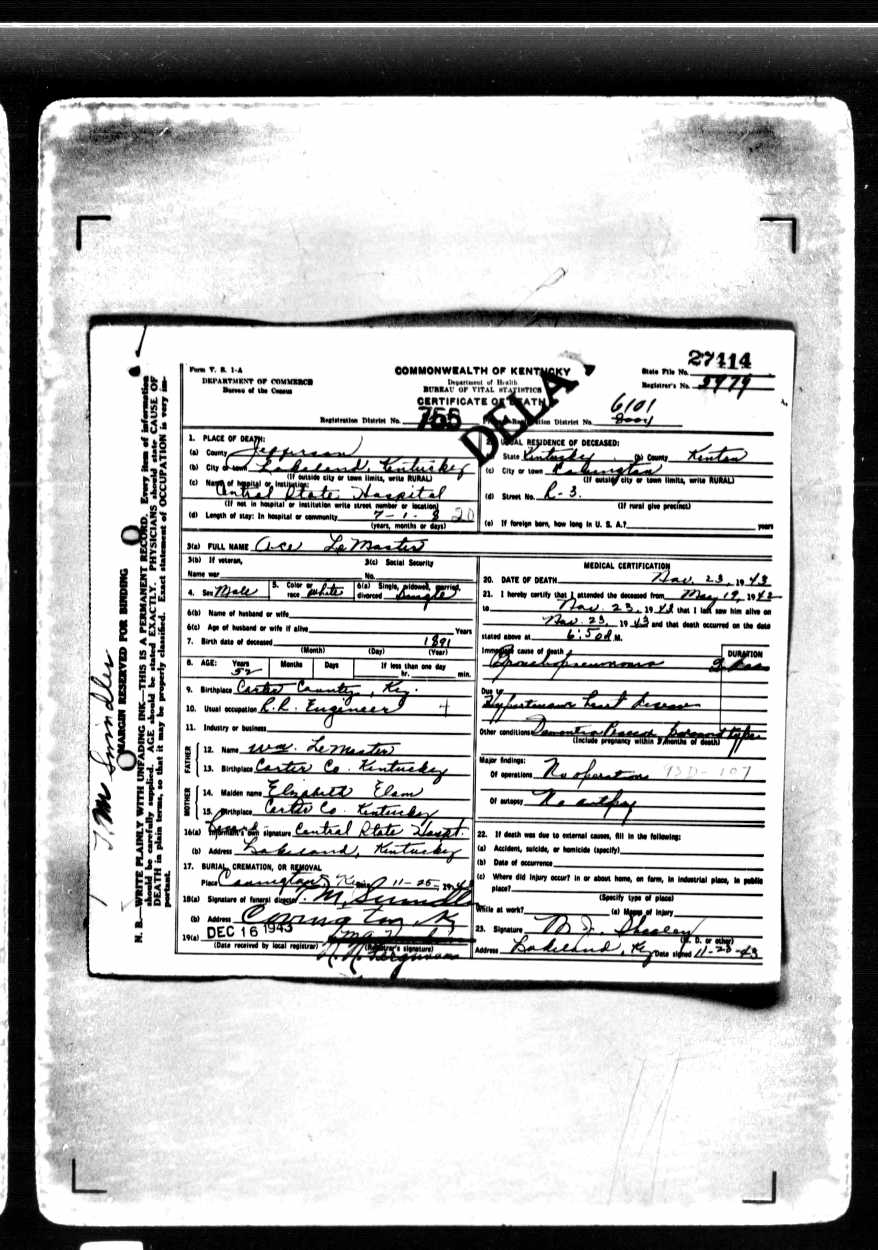 Form V. S. 1-A
DEPARTMENT OF COMMERCE
Bureau of the Census
COMMONWEALTH OF KENTUCKY
Department of Health
BUREAU OF VITAL STATISTICS
CERTIFICATE OF DEATH
State File No. 27414
Registrar's No. 5979
DELA
Registration District No. 755
Registration District No. 6101
1. PLACE OF DEATH:
(a) County Jefferson
(b) City or town Lakeland, Kentuckey
(If outside city or town limits, write RURAL)
(c) Name of hospital or institution:
Central State Hospital
(If not in hospital or institution write street number or location)
(d) Length of stay: In hospital or community 7-1-8 20
(years, months or days)
USUAL RESIDENCE OF DECEASED:
State Kentuckey (b) County Kenton
(c) City or town Covington
(If outside city or town limits, write RURAL)
(d) Street No. R-3.
(If rural give precinct)
(e) If foreign born, how long in U. S. A.? years
3(a) FULL NAME Ace LeMaster
3(b) If veteran,
Name war
3(c) Social Security
No.
4. Sex Male
5. Color or race White
6(a) Single, widowed, married, divorced Single
6(b) Name of husband or wife
6(c) Age of husband or wife if alive Years
7. Birth date of deceased 1891
(Month) (Day) (Year)
8. AGE: Years Months Days If less than one day
52 hr. min.
9. Birthplace Carter County, Ky.
10. Usual occupation R.R. Engineer
11. Industry or business
FATHER
12. Name Wm. LeMaster
13. Birthplace Carter Co. Kentuckey
MOTHER
14. Maiden name Elizabeth Elam
15. Birthplace Carter Co. Kentuckey
16(a) Informant's own signature Central State Hospt.
(b) Address Lakeland, Kentuckey
17. BURIAL, CREMATION, OR REMOVAL
Place Covington, Ky. 11-25, 1943
18(a) Signature of funeral director T. M. Swindler
(b) Address Covington, Ky
19(a) DEC 16 1943
(Date received by local registrar) (Registrar's signature)
MEDICAL CERTIFICATION
20. DATE OF DEATH Nov. 23, 1943
21. I hereby certify that I attended the deceased from May 19, 1943
to Nov. 23, 1943 that I last saw him alive on
Nov. 23, 1943 and that death occurred on the date
stated above at 6:50 M.
Immediate cause of death
DURATION
Bronchopneumonia
Due to
Hypertensive heart disease
Other conditions Dementia Praecox
(Include pregnancy within 3 months of death)
Major findings:
Of operations No operations 93D-107
Of autopsy No autopsy
22. If death was due to external causes, fill in the following:
(a) Accident, suicide, or homicide (specify)
(b) Date of occurrence
(c) Where did injury occur? In or about home, on farm, in industrial place, in public
place?
(Specify type of place)
While at work? (e) Means of injury
23. Signature
(M. D. or other)
Address Lakeland, Ky Date signed 11-23-43
T. M. Swindler
MARGIN RESERVED FOR BINDING
N. B.—WRITE PLAINLY WITH UNFADING INK—THIS IS A PERMANENT RECORD. Every item of information
should be carefully supplied. AGE should be stated EXACTLY. PHYSICIANS should state CAUSE OF
DEATH in plain terms, so that it may be properly classified. Exact statement of OCCUPATION is very im-
portant.